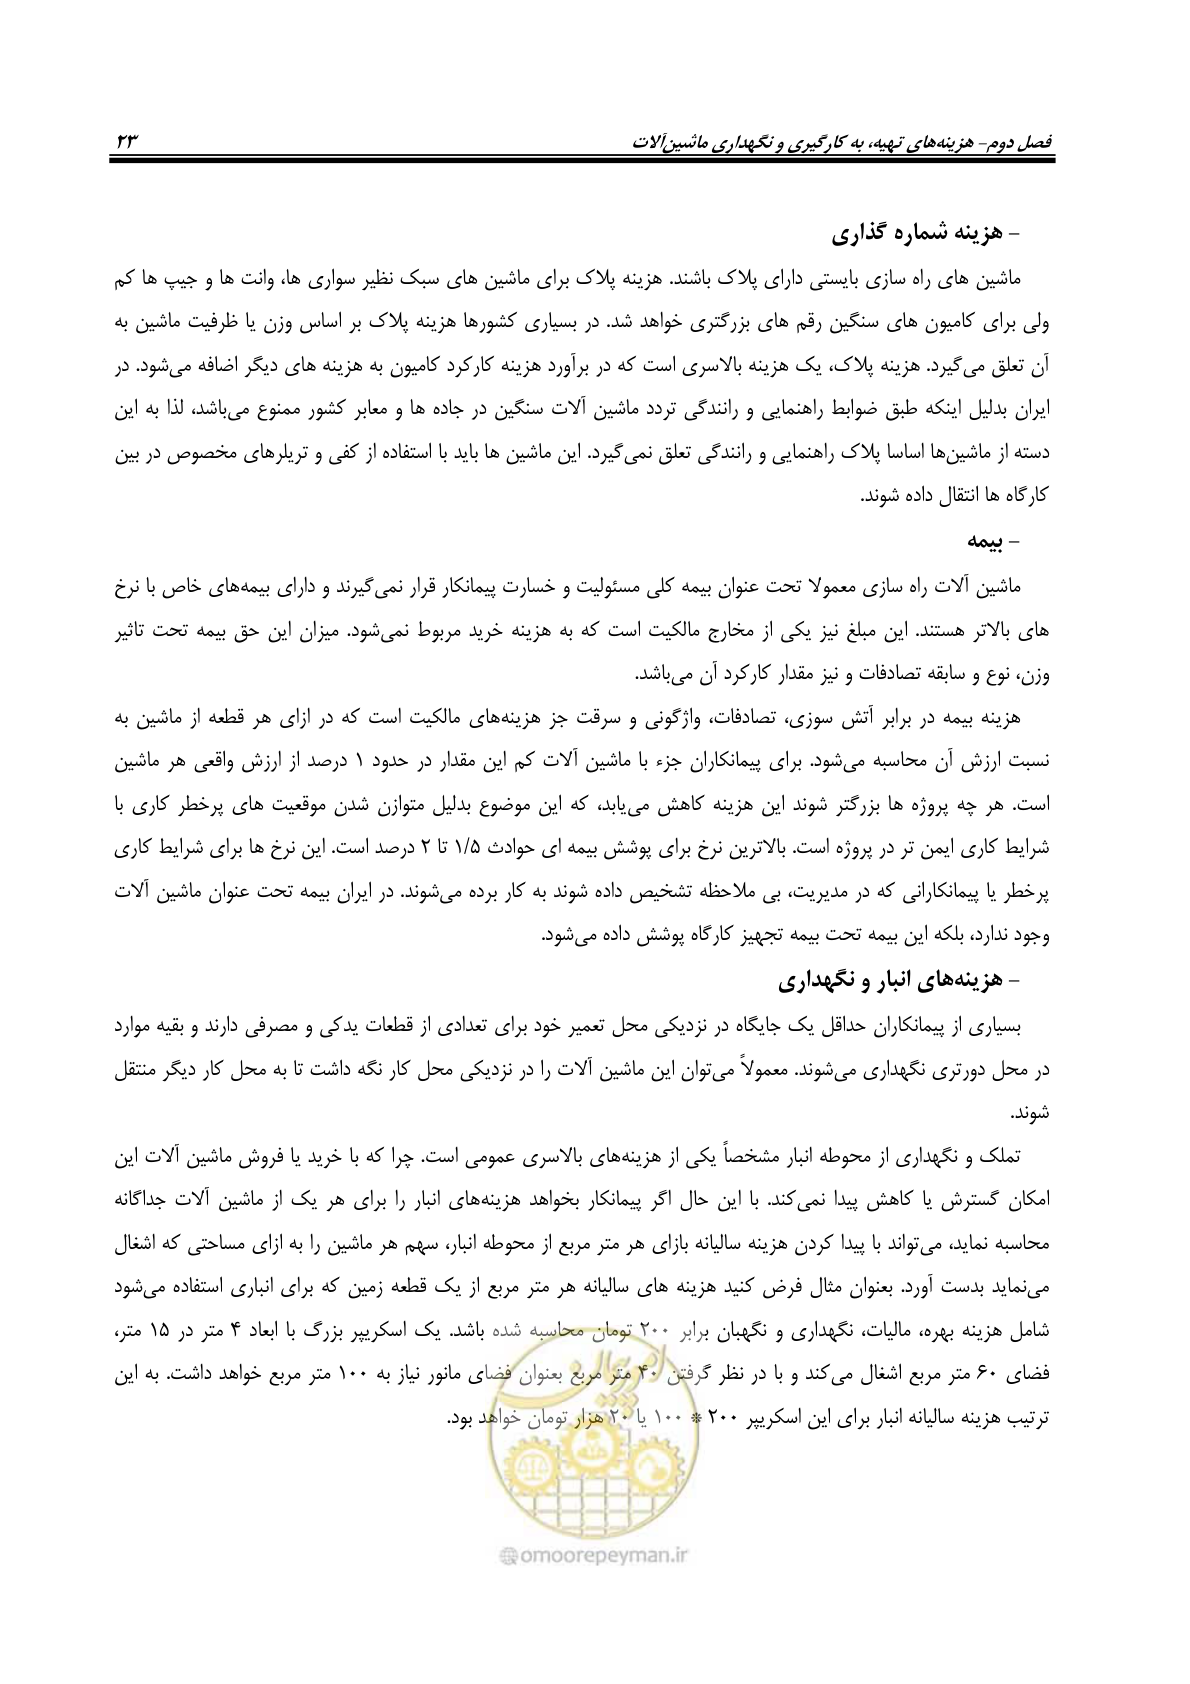 فصل دوم- هزینه‌های تهیه، به کارگیری و نگهداری ماشین‌آلات ۲۳
- هزینه شماره گذاری
ماشین های راه سازی بایستی دارای پلاک باشند. هزینه پلاک برای ماشین های سبک نظیر سواری ها، وانت ها و جیپ ها کم
ولی برای کامیون های سنگین رقم های بزرگتری خواهد شد. در بسیاری کشورها هزینه پلاک بر اساس وزن یا ظرفیت ماشین به
آن تعلق می‌گیرد. هزینه پلاک، یک هزینه بالاسری است که در برآورد هزینه کارکرد کامیون به هزینه های دیگر اضافه می‌شود. در
ایران بدلیل اینکه طبق ضوابط راهنمایی و رانندگی تردد ماشین آلات سنگین در جاده ها و معابر کشور ممنوع می‌باشد، لذا به این
دسته از ماشین‌ها اساسا پلاک راهنمایی و رانندگی تعلق نمی‌گیرد. این ماشین ها باید با استفاده از کفی و تریلرهای مخصوص در بین
کارگاه ها انتقال داده شوند.
- بیمه
ماشین آلات راه سازی معمولا تحت عنوان بیمه کلی مسئولیت و خسارت پیمانکار قرار نمی‌گیرند و دارای بیمه‌های خاص با نرخ
های بالاتر هستند. این مبلغ نیز یکی از مخارج مالکیت است که به هزینه خرید مربوط نمی‌شود. میزان این حق بیمه تحت تاثیر
وزن، نوع و سابقه تصادفات و نیز مقدار کارکرد آن می‌باشد.
هزینه بیمه در برابر آتش سوزی، تصادفات، واژگونی و سرقت جز هزینه‌های مالکیت است که در ازای هر قطعه از ماشین به
نسبت ارزش آن محاسبه می‌شود. برای پیمانکاران جزء با ماشین آلات کم این مقدار در حدود ۱ درصد از ارزش واقعی هر ماشین
است. هر چه پروژه ها بزرگتر شوند این هزینه کاهش می‌یابد، که این موضوع بدلیل متوازن شدن موقعیت های پرخطر کاری با
شرایط کاری ایمن تر در پروژه است. بالاترین نرخ برای پوشش بیمه ای حوادث ۱/۵ تا ۲ درصد است. این نرخ ها برای شرایط کاری
پرخطر یا پیمانکارانی که در مدیریت، بی ملاحظه تشخیص داده شوند به کار برده می‌شوند. در ایران بیمه تحت عنوان ماشین آلات
وجود ندارد، بلکه این بیمه تحت بیمه تجهیز کارگاه پوشش داده می‌شود.
- هزینه‌های انبار و نگهداری
بسیاری از پیمانکاران حداقل یک جایگاه در نزدیکی محل تعمیر خود برای تعدادی از قطعات یدکی و مصرفی دارند و بقیه موارد
در محل دورتری نگهداری می‌شوند. معمولاً می‌توان این ماشین آلات را در نزدیکی محل کار نگه داشت تا به محل کار دیگر منتقل
شوند.
تملک و نگهداری از محوطه انبار مشخصاً یکی از هزینه‌های بالاسری عمومی است. چرا که با خرید یا فروش ماشین آلات این
امکان گسترش یا کاهش پیدا نمی‌کند. با این حال اگر پیمانکار بخواهد هزینه‌های انبار را برای هر یک از ماشین آلات جداگانه
محاسبه نماید، می‌تواند با پیدا کردن هزینه سالیانه بازای هر متر مربع از محوطه انبار، سهم هر ماشین را به ازای مساحتی که اشغال
می‌نماید بدست آورد. بعنوان مثال فرض کنید هزینه های سالیانه هر متر مربع از یک قطعه زمین که برای انباری استفاده می‌شود
شامل هزینه بهره، مالیات، نگهداری و نگهبان برابر ۲۰۰ تومان محاسبه شده باشد. یک اسکریپر بزرگ با ابعاد ۴ متر در ۱۵ متر،
فضای ۶۰ متر مربع اشغال می‌کند و با در نظر گرفتن ۴۰ متر مربع بعنوان فضای مانور نیاز به ۱۰۰ متر مربع خواهد داشت. به این
ترتیب هزینه سالیانه انبار برای این اسکریپر ۲۰۰ * ۱۰۰ یا ۲۰ هزار تومان خواهد بود.
امور پیمان
@omoorepeyman.ir